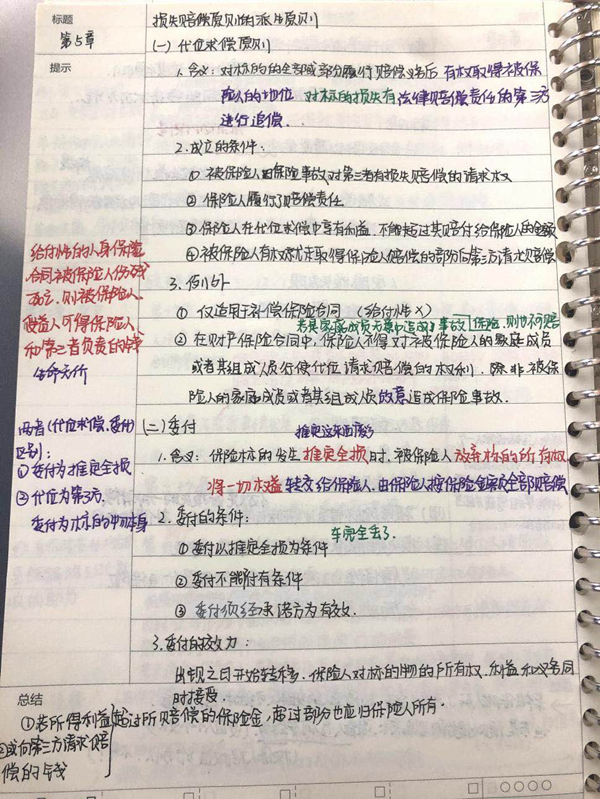 标题
第5章
损失赔偿原则的派生原则
提示
(一) 代位求偿原则
1. 含义: 对标的的全部或部分履行赔偿义务后 有权取得被保
险人的地位 对标的损失有法律赔偿责任的第三方
进行追偿.
2. 成立的条件:
① 被保险人因保险事故对第三者有损失赔偿的请求权
② 保险人履行了赔偿责任
③ 保险人在代位求偿中享有利益, 不能超过其赔付给保险人的金额
④ 被保险人有权就未取得保险人赔偿的部分向第三方请求赔偿
给付性的人身保险
合同被保险人伤残
死亡, 则被保险人、
受益人可得保险人
和第三者负责的
生命无价
3. 例外
① 仅适用于补偿保险合同 (给付性 X)
若是家庭成员无意中造成了事故 保险, 则也不可赔
② 在财产保险合同中, 保险人不得对被保险人的家庭成员
或者其组成人员行使代位请求赔偿的权利. 除非被保
险人的家庭成员或者其组成人员故意造成保险事故.
两者(代位求偿, 委付)
区别:
① 委付为推定全损
③ 代位为第三方,
委付为标的物本身
(二) 委付
推定这东西废了
1. 含义: 保险标的发生推定全损时, 被保险人放弃标的所有权
将一切权益转交给保险人, 由保险人按保险金额全部赔偿
2. 委付的条件:
车完全丢了.
① 委付以推定全损为条件
② 委付不能附有条件
③ 委付须经承诺方为有效.
3. 委付的效力:
出现之日开始转移. 保险人对标的物的所有权. 利益和义务同
时接受.
总结
① 若所得利益超过所赔偿的保险金, 超过部分也应归保险人所有.
② 或向第三方请求赔
偿的钱